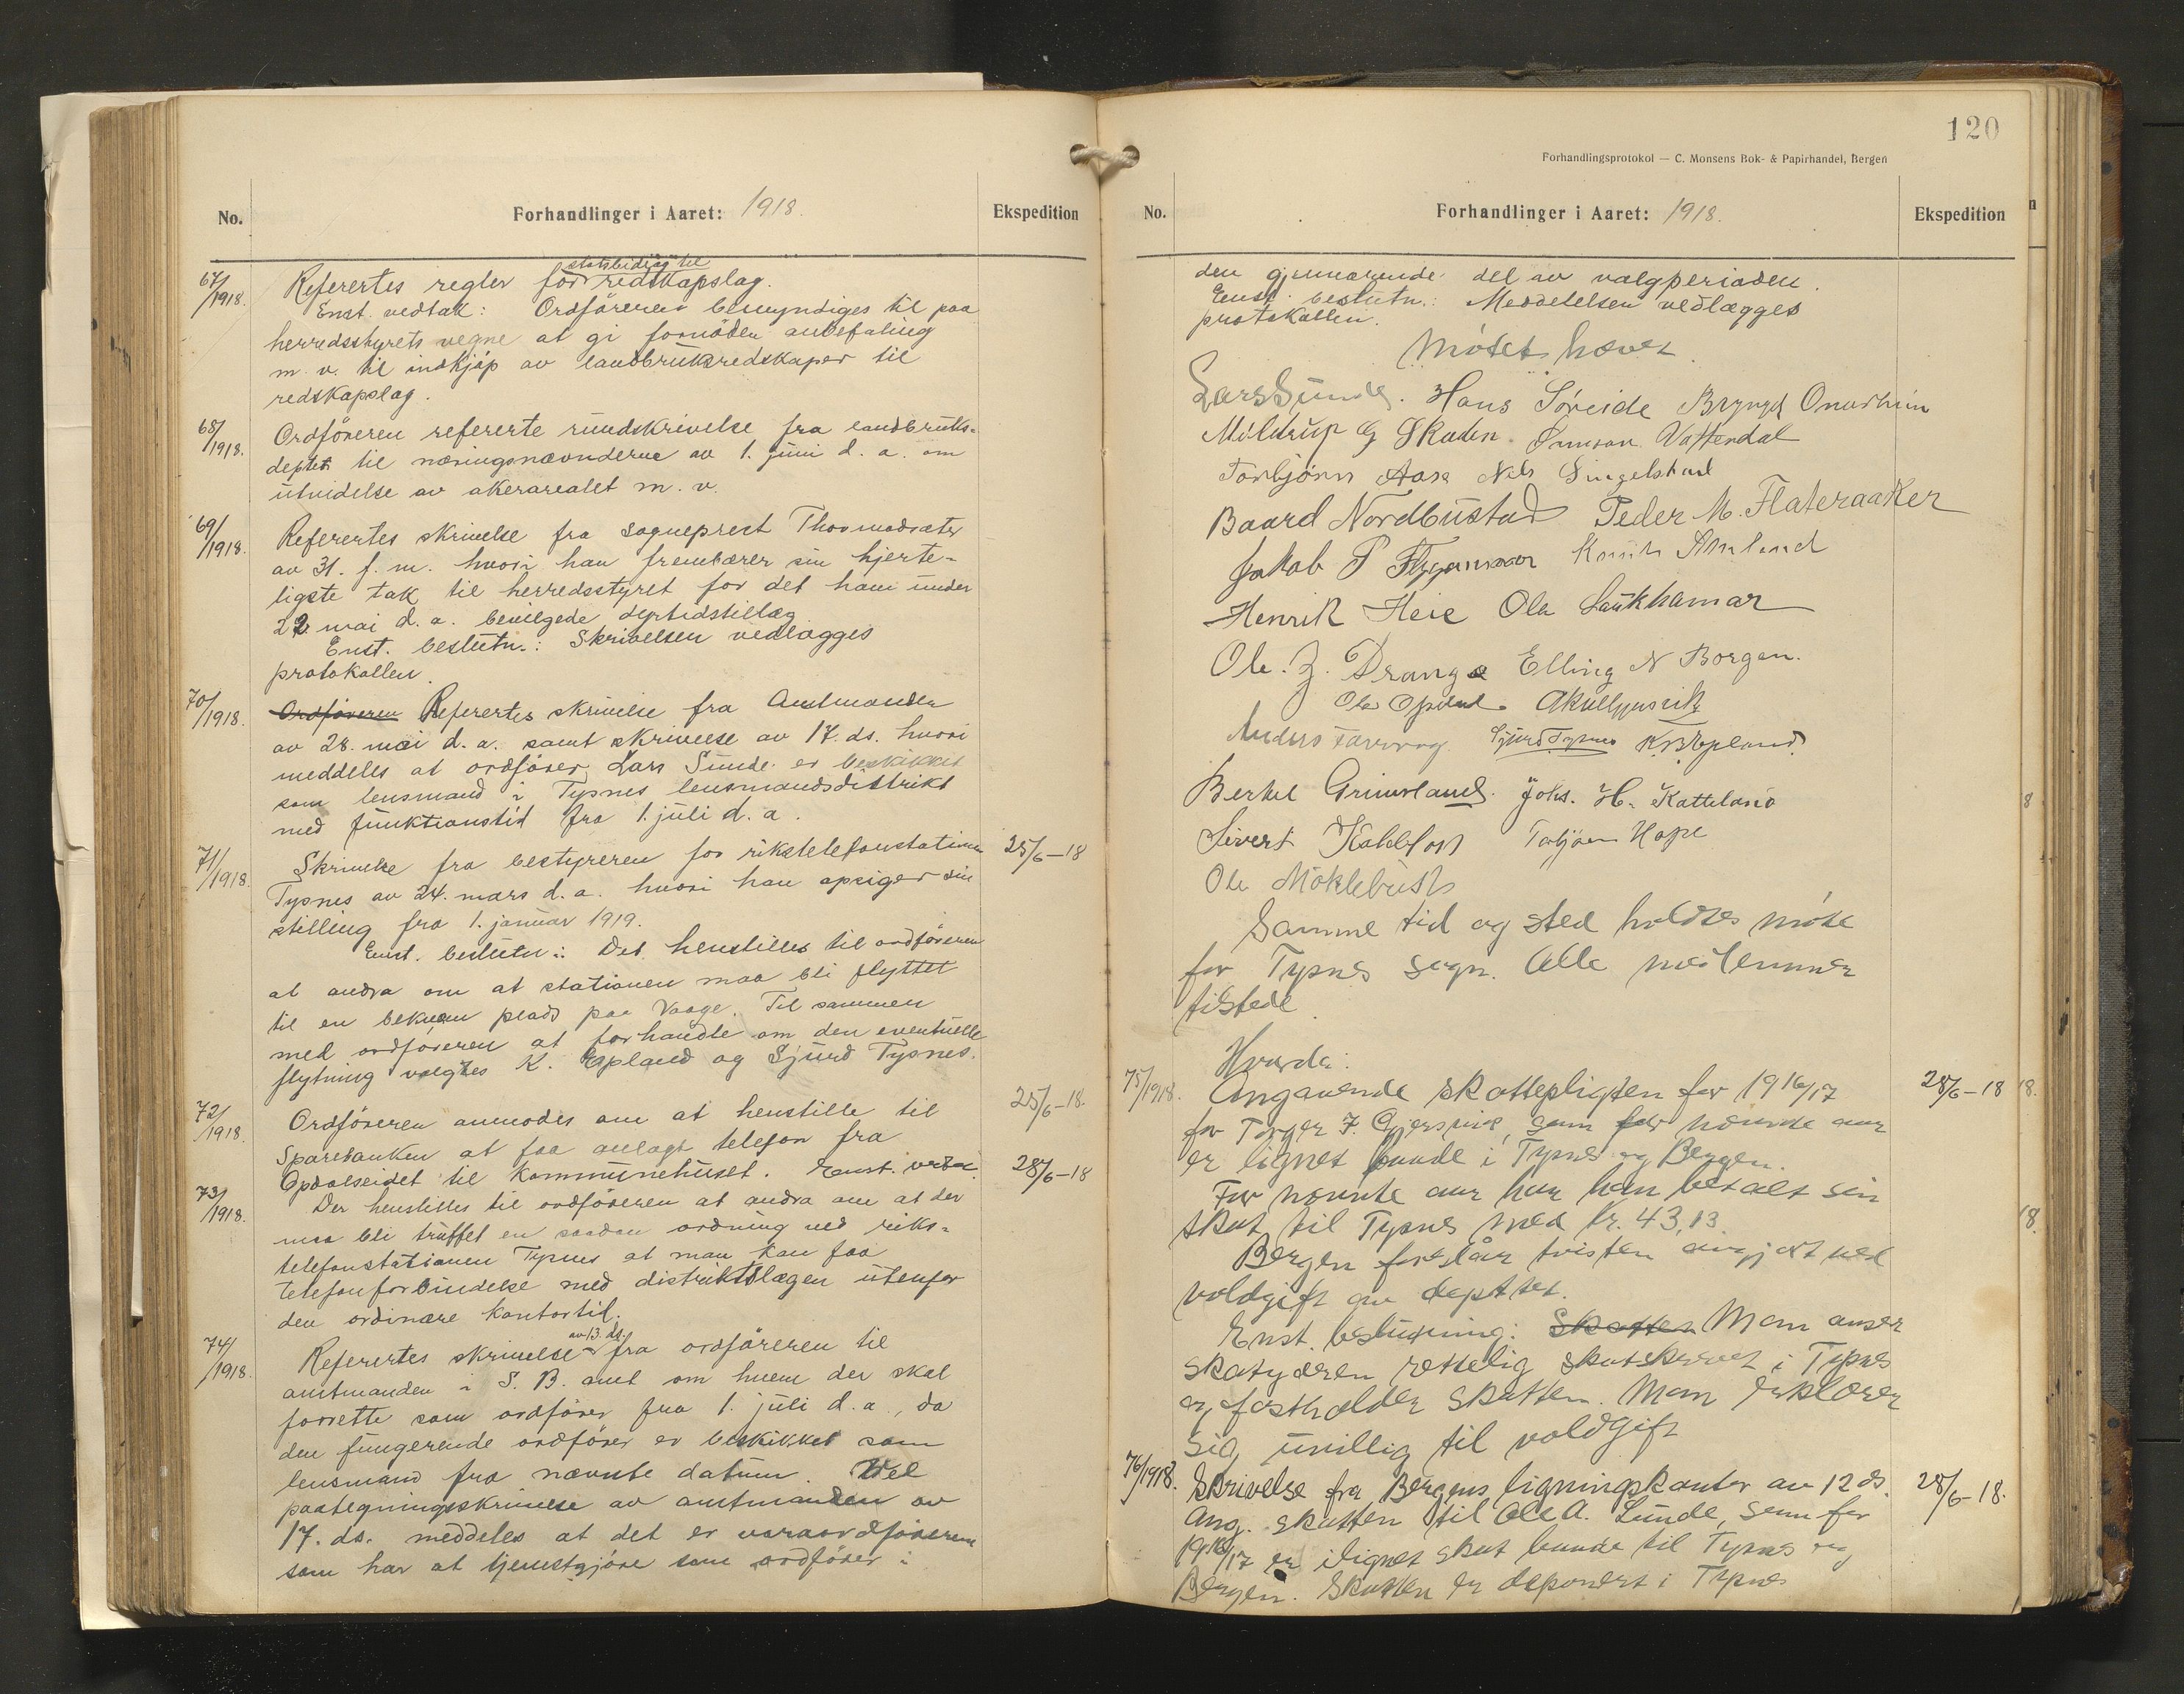 No.
Forhandlinger i Aaret: 1918.
Ekspedition
67/1918.
Referertes regler for statsbidrag til redskapslag.
Enst. vedtak: Ordföreren bemyndiges til paa
herredsstyrets vegne at gi fornöden anbefaling
m.v. til indkjöp av landbruksredskaper til
redskapslag.
68/1918.
Ordföreren refererte rundskrivelse fra landbruks-
deptet til næringsnævnderne av 1. juni d.a. om
utvidelse av akerarealet m.v.
69/1918.
Referertes skrivelse fra sogneprest Thormodsæter
av 31. f.m. hvori han frembærer sin hjerte-
ligste tak til herredsstyret for det ham under
22 mai d.a. bevilgede dyrtidstillæg
Enst. beslutn.: Skrivelsen vedlægges
protokollen.
70/1918.
Ordföreren Referertes skrivelse fra Amtmanden
av 28. mai d.a. samt skrivelse av 17. ds. hvori
meddeles at ordförer Lars Sunde er beskikket
som lensmand i Tysnes lensmandsdistrikt
med funktionstid fra 1. juli d.a.
71/1918.
Skrivelse fra bestyreren for rikstelefonstation
25/6-18
Tysnes av 24. mars d.a. hvori han opsiger sin
stilling fra 1. januar 1919.
Enst. beslutn.: Det henstilles til ordföreren
at andra om at stationen maa bli flyttet
til en bekvem plads paa Vaage. Til sammen
med ordföreren at forhandle om den eventuelle
flytning valgtes K. Epland og Sjurd Tysnes.
72/1918.
Ordföreren anmodes om at henstille til
25/6-18.
Sparebanken at faa anlagt telefon fra
Opdalseidet til kommunehuset. Enst. vedtat
28/6-18
73/1918.
Der henstilles til ordföreren at andra om at der
maa bli truffet en saadan ordning ved riks-
telefonstationen Tysnes at man kan faa
telefonforbindelse med distriktslægen utenfor
den ordinære kontortid.
74/1918.
Referertes skrivelse av 13. ds. fra ordföreren til
amtmanden i S. B. amt om hvem der skal
forrette som ordförer fra 1. juli d.a., da
den fungerende ordförer er beskikket som
lensmand fra nævnte datum. Ved
paategningsskrivelse av amtmanden av
17. ds. meddeles at det er varaordföreren
som har at tjenestgjöre som ordförer i
120
Forhandlingsprotokol — C. Monsens Bok- & Papirhandel, Bergen
No.
Forhandlinger i Aaret: 1918.
Ekspedition
den gjenværende del av valgperioden.
Enst. beslutn.: Meddelelsen vedlægges
protokollen.
Møtet hævet.
Lars Sunde. Hans Söreide
Skaden Vattendal
Torbjörn Aase Nils Singelstad
Baard Nordbustad Peder M. Flateraaker
Jakob P Knut Amland
Henrik Heie Ole Laukhamar
Ole. J. Drange Elling N Borgen.
Ole Opdal
Anders Sjurd Tysnes K Epland
Berhel Grimsland. Johs. H. Katteland
Sivert Torbjörn Hope
Ole Möklebust
Samme tid og sted holdtes møte
for Tysnes sogn. Alle medlemmer
tilstede.
Hvorda:
75/1918.
Angaaende skattepligten for 1916/17
28/6-18
for Torger J. Gjersvik, som for nævnte aar
er lignet baade i Tysnes og Bergen.
For nævnte aar har han betalt sin
skat til Tysnes med kr. 43,13.
Bergen foreslår tvisten avgjort ved
voldgift av depttet.
Enst. beslutning: Skatten Man anser
skatyderen rettelig skatskrevet i Tysnes
og fastholder skatten. Man erklærer
sig uvillig til voldgift
76/1918.
Skrivelse fra Bergens ligningskontor av 12 ds.
28/6-18.
ang. skatten til Ole A. Lunde, som for
1916/17 er ilignet skat baade til Tysnes og
Bergen. Skatten er deponert i Tysnes